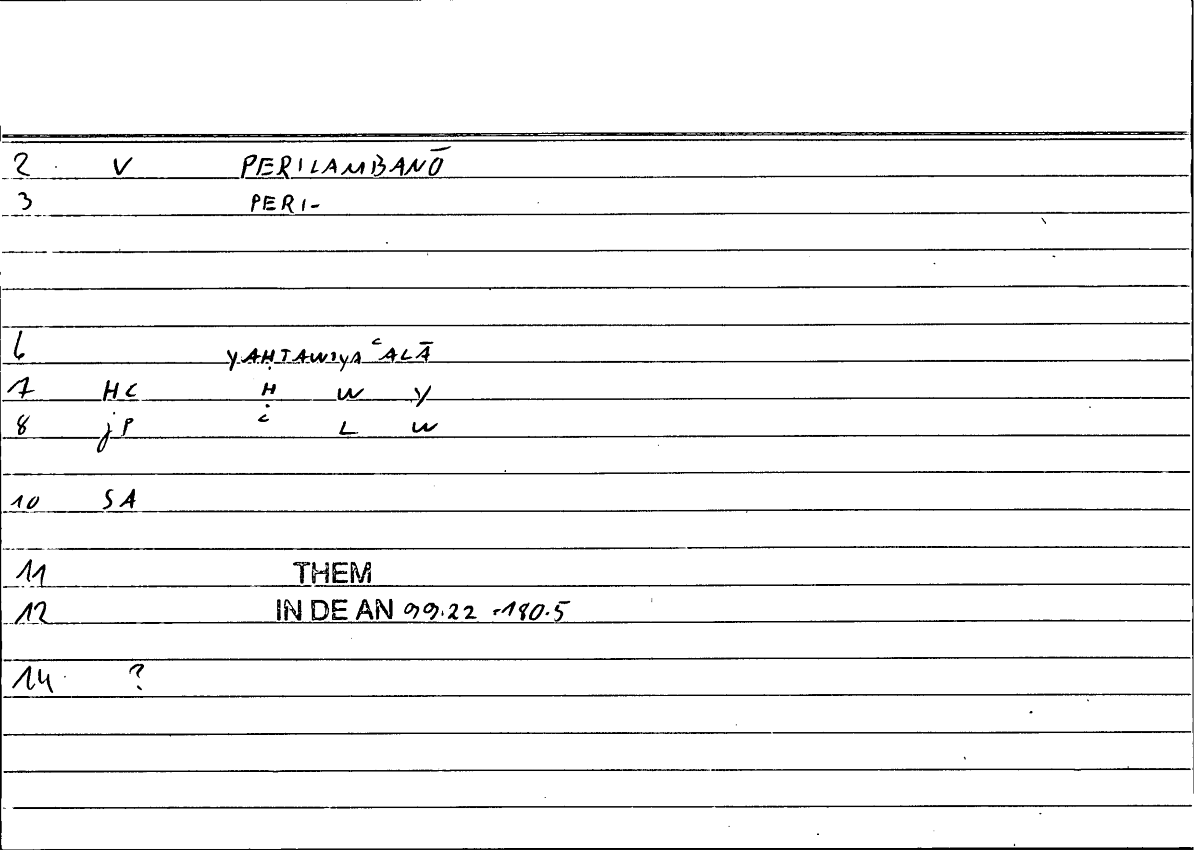 2 V PERILAMBANŌ
3 PERI-
6 YAḤTAWIYA ʿALĀ
7 HC Ḥ W Y
8 jP ʿ L W
10 SA
11 THEM
12 IN DE AN 99.22 -180.5
14 ?